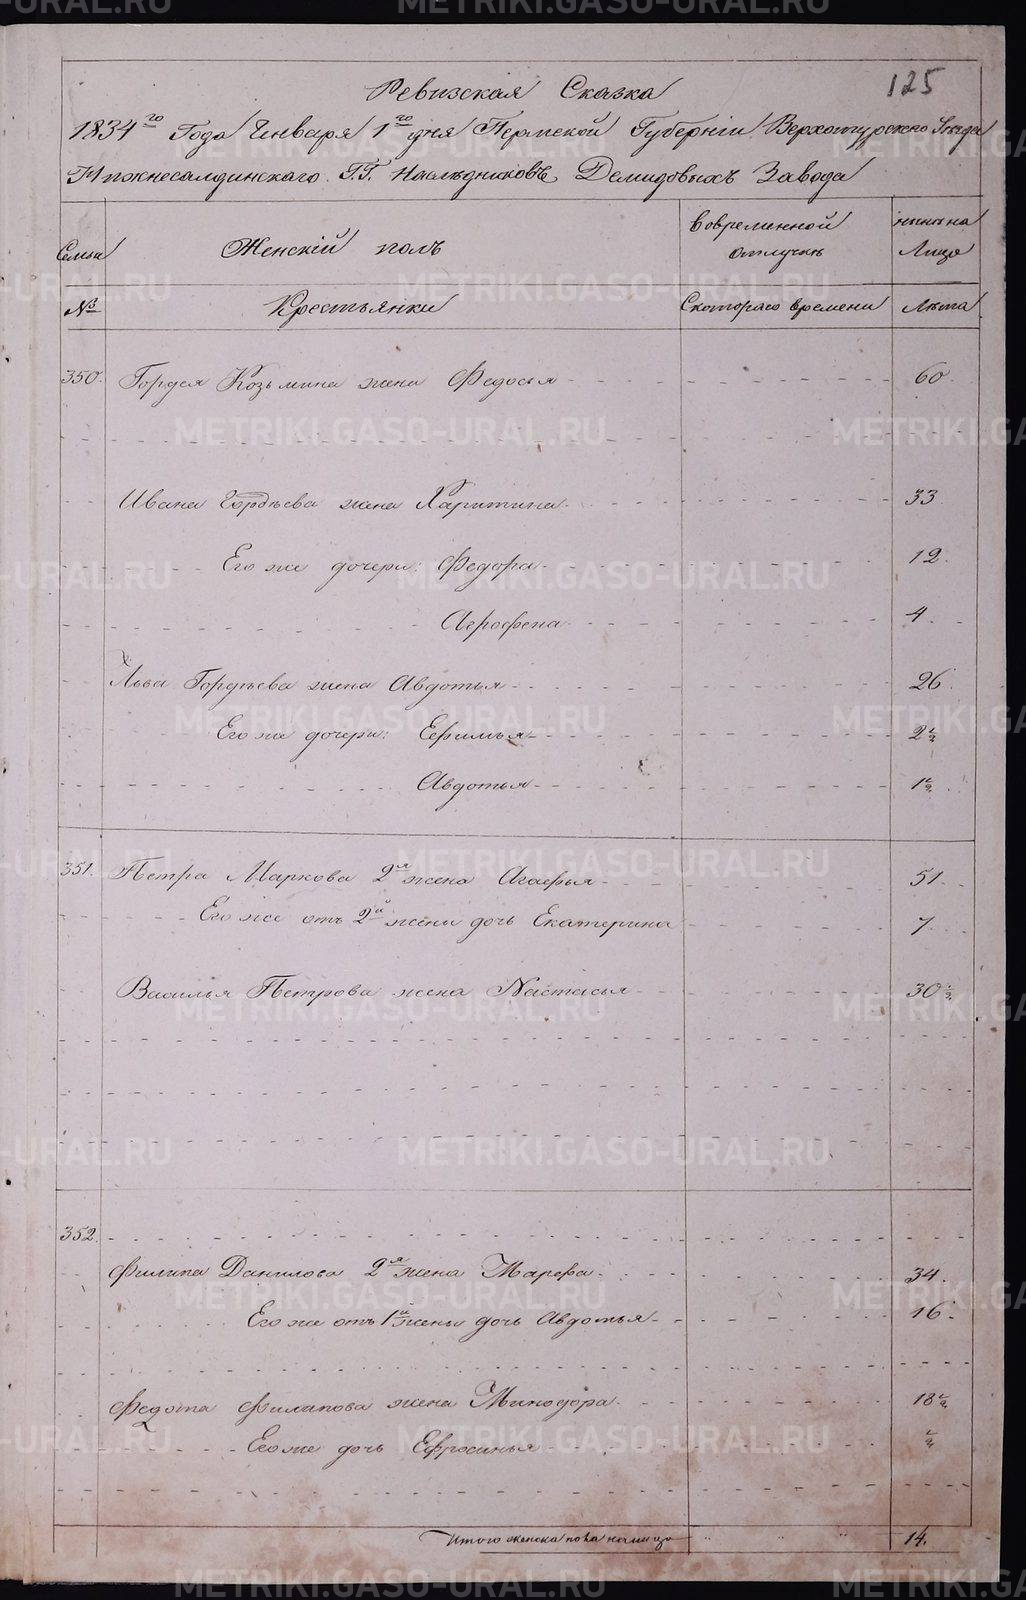 125
Ревизская Сказка
1834го Года Генваря 1го дня Пермской Губернiи Верхотурскаго Уѣзда
Нижнесалдинскаго Г.Г. Наслѣдниковъ Демидовыхъ Завода
Семьи
Женскiй полъ
Вовременной отлучкѣ
нынѣ на Лицо
№
Крестьянки
Скотораго времени
Лѣта
350. Гордея Козьмина жена Федосья 60.
Ивана Гордѣева жена Харитина 33
Его же дочери: Федора 12.
Агрофена 4.
Льва Гордѣева жена Авдотья 26.
Его же дочери: Ефимья 2 ½
Авдотья 1 ½
351. Петра Маркова 2я жена Агафья 51.
Его же отъ 2й жены дочь Екатерина 7.
Василья Петрова жена Настасья 30 ½
352.
Филипа Данилова 2я жена Марфа 34.
Его же отъ 1й жены дочь Авдотья 16.
Федота Филипова жена Минодора 18 ½
Его же дочь Ефросинья ½
Итого женска пола налицо " " " 14.
METRIKI.GASO-URAL.RU